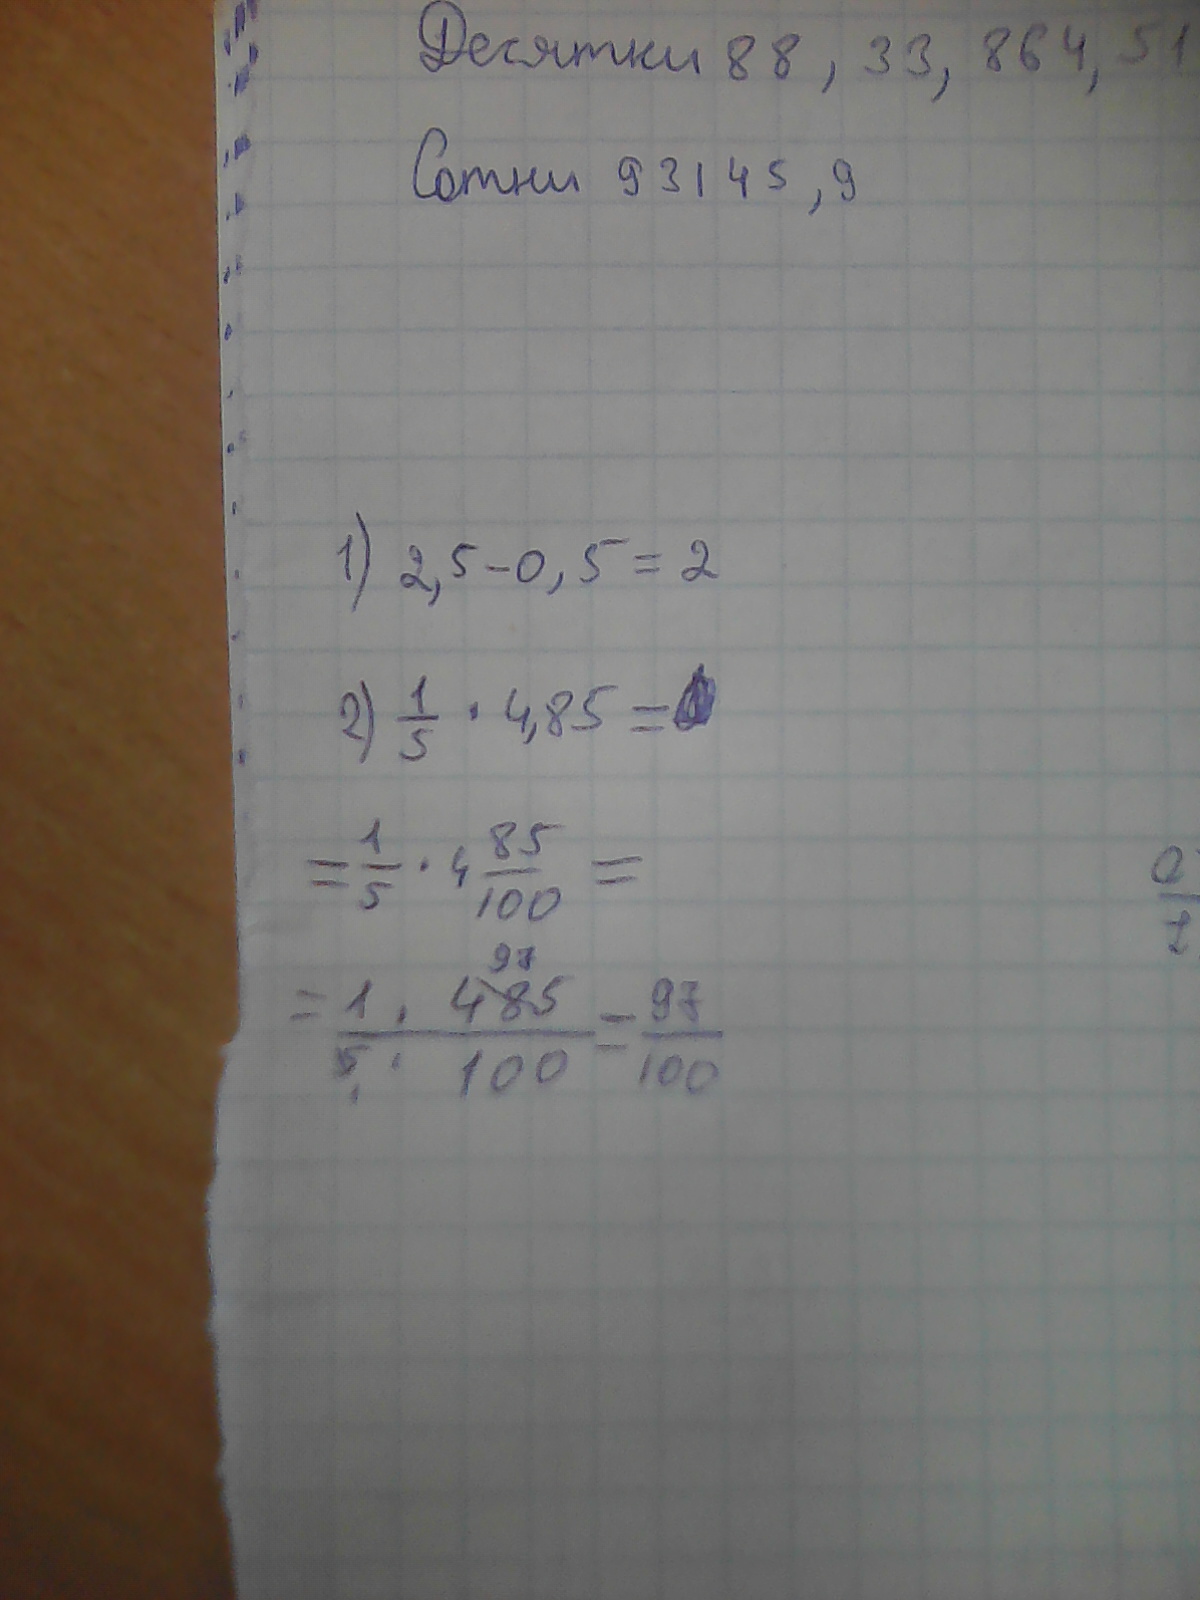 Десятки 88, 33, 864, 51
Сотни 93145,9
1) 2,5-0,5=2
2) 1/5 · 4,85 =
= 1/5 · 4 85/100 =
97
= 1 · 485 / 5 · 100 = 97/100
1